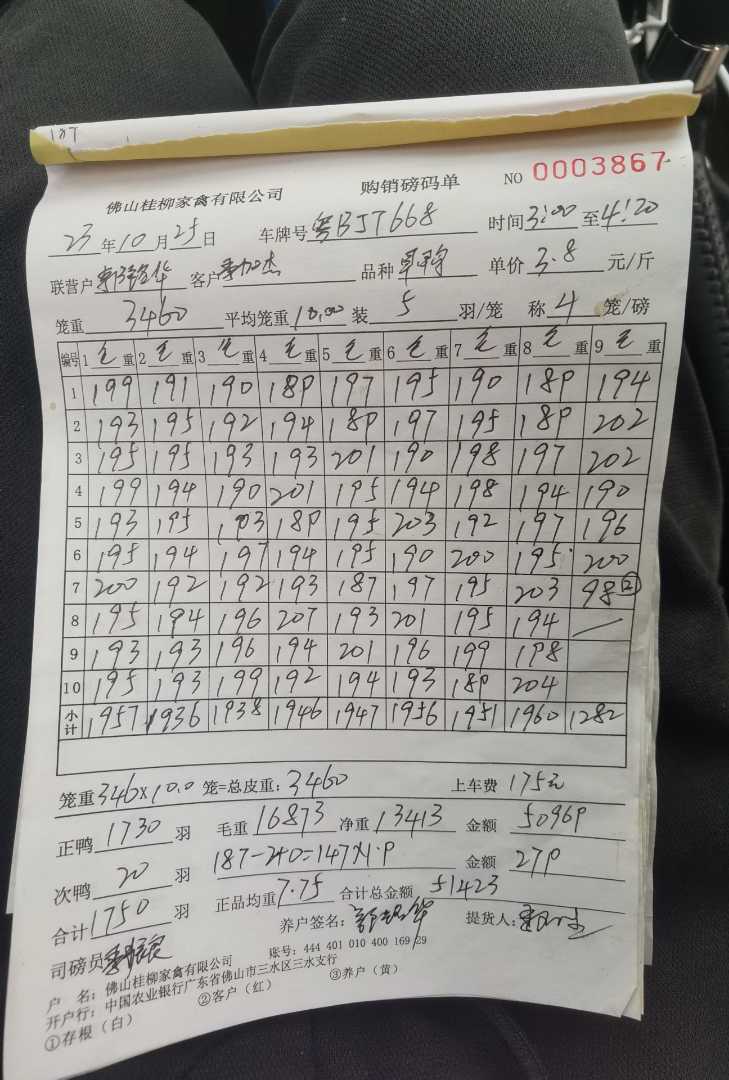 187
佛山桂柳家禽有限公司 购销磅码单 NO 0003867
23年10月25日 车牌号粤BJT668 时间3:00至4:20
联营户 客户 品种 单价3.8元/斤
笼重3460平均笼重10.00装5羽/笼 称4笼/磅
编号 1毛重 2毛重 3毛重 4毛重 5毛重 6毛重 7毛重 8毛重 9毛重
1 199 191 190 189 197 195 190 189 194
2 193 195 192 194 189 197 195 189 202
3 195 195 193 193 201 190 198 197 202
4 199 194 190 201 195 194 198 194 190
5 193 195 193 189 195 203 192 197 196
6 195 194 197 194 195 190 200 195 200
7 200 192 192 193 187 197 195 203 98②
8 195 194 196 207 193 201 195 194 —
9 193 193 196 194 201 196 199 198
10 195 193 199 192 194 193 189 204
小计 1957 1936 1938 1946 1947 1956 1951 1960 1282
笼重346×10.0笼=总皮重:3460 上车费175元
正鸭1730羽 毛重16873净重13413 金额50969
次鸭20羽 187-40=147×1.9 金额279
合计1750羽 正品均重7.75 合计总金额51423
司磅员 养户签名: 提货人:
户 名:佛山桂柳家禽有限公司 账号:444 401 010 400 169 29
开户行:中国农业银行广东省佛山市三水区三水支行
①存根(白) ②客户(红) ③养户(黄)